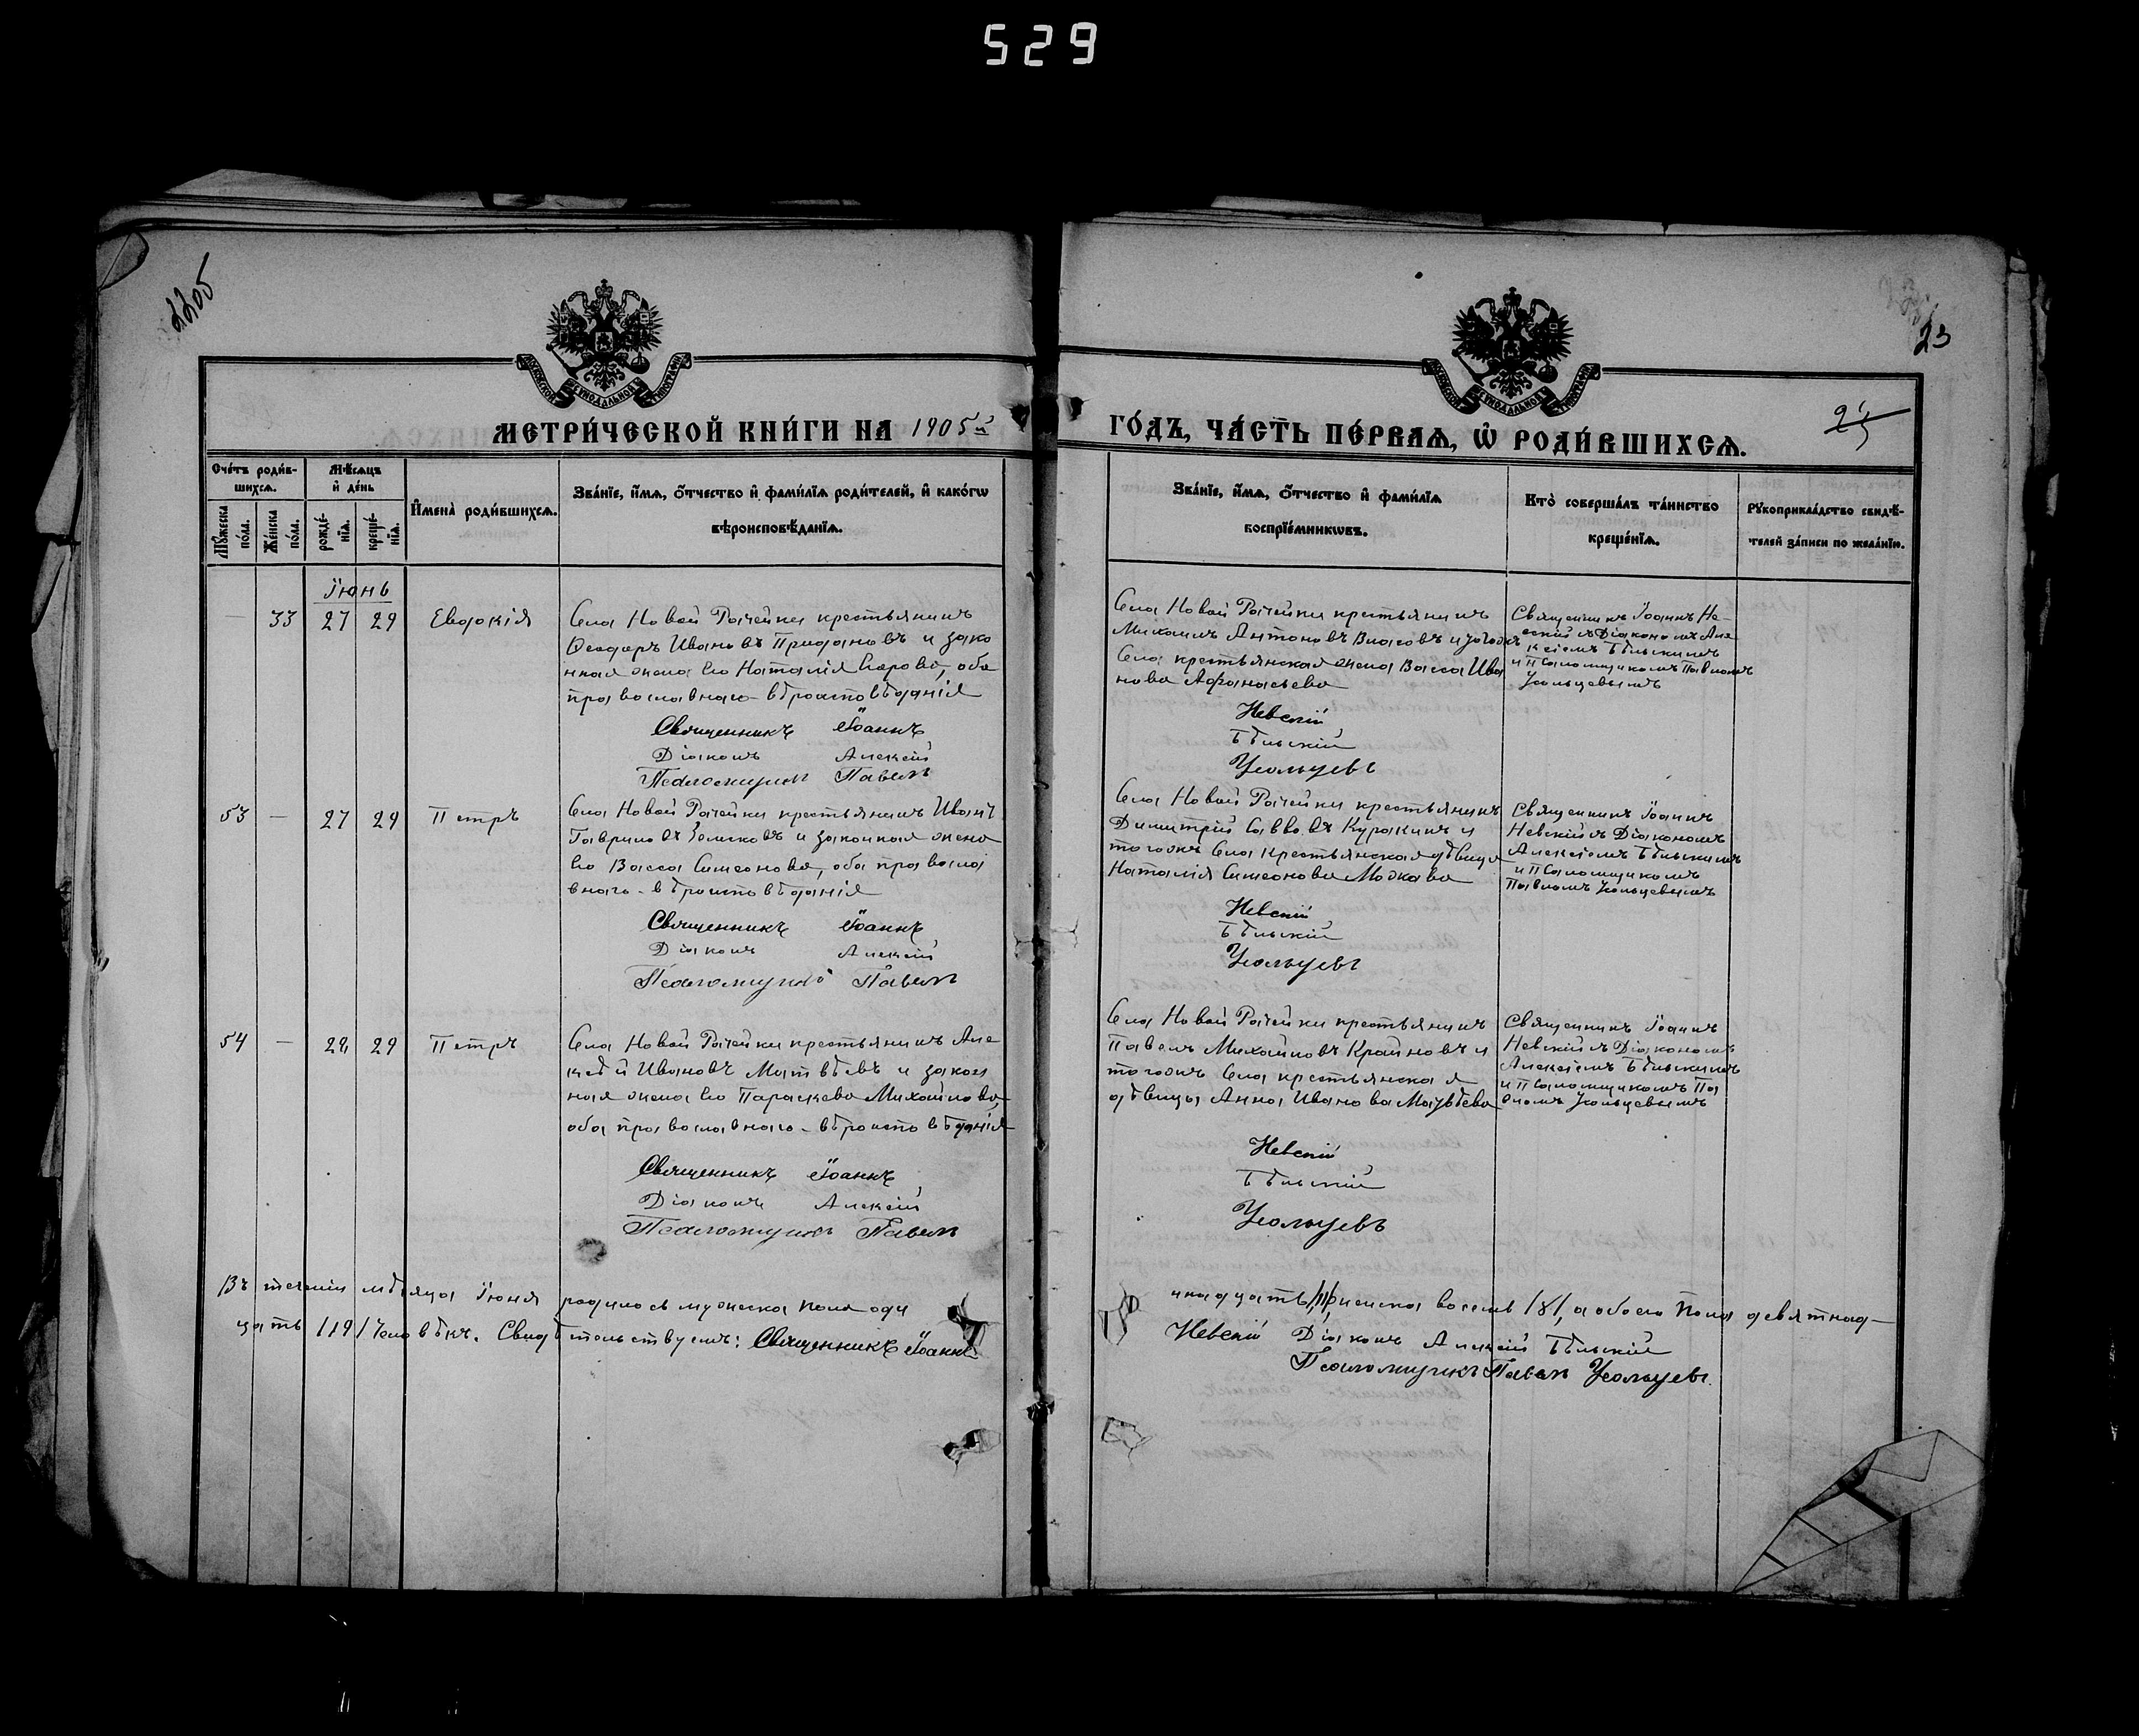 529
2205
23
МЕТРИ́ЧЕСКОЙ КНИ́ГИ НА 1905й
ГО́ДЪ, ЧА́СТЬ ПЕ́РВАѦ, Ѡ҆ РОДИ́ВШИХСѦ.
Сче́тъ роди́в-
шихсѧ.
Мѣ́сѧцъ
и҆ де́нь
И҆мена̀ роди́вшихсѧ.
Зва́нїе, и҆́мѧ, ѻ҆́тчество и҆ фами́лїѧ роди́телей, и҆ како́гѡ
вѣроисповѣ́данїѧ.
Мꙋ́жеска
по́ла.
Же́нска
по́ла.
рожде́-
нїѧ.
креще́-
нїѧ.
Зва́нїе, и҆́мѧ, ѻ҆́тчество и҆ фами́лїѧ
воспрїе́мникѡвъ.
Кто̀ соверша́лъ та́инство
креще́нїѧ.
Рꙋкоприкла́дство свидѣ́-
телей за́писи по жела́нїю.
Іюнь
— 33 27 29 Евдокія
Села Новой Рачейки крестьянинъ
Ѳеодоръ Ивановъ Придановъ и зако
нная жена его Наталія Егорова, оба
православнаго вѣроисповѣданія
Священникъ Іоаннъ
Діаконъ Алексій
Псаломщикъ Павелъ
Села Новой Рачейки крестьянинъ
Михаилъ Антоновъ Власовъ и тогожъ
Села крестьянская жена Васса Ива
нова Афанасьева
Невскій
Бѣльскій
Усольцевъ
Священникъ Іоаннъ Не-
вскій съ Діакономъ Але
ксіемъ Бѣльскимъ
и Псаломщикомъ Павломъ
Усольцевымъ
53 — 27 29 Петръ
Села Новой Рачейки крестьянинъ Иванъ
Гавриловъ и законная жена
его Васса Симеонова, оба правосла
внаго вѣроисповѣданія
Священникъ Іоаннъ
Діаконъ Алексій
Псаломщикъ Павелъ
Села Новой Рачейки крестьянинъ
Димитрій Савовъ Куракинъ и
тогожъ Села крестьянская дѣвица
Наталія Симеонова
Невскій
Бѣльскій
Усольцевъ
Священникъ Іоаннъ
Невскій съ Діакономъ
Алексіемъ Бѣльскимъ
и Псаломщикомъ
Павломъ Усольцевымъ
54 — 28 29 Петръ
Села Новой Рачейки крестьянинъ Але
ксѣй Ивановъ Матвѣевъ и закон
ная жена его Параскева Михайлова,
оба православнаго вѣроисповѣданія
Священникъ Іоаннъ
Діаконъ Алексій
Псаломщикъ Павелъ
Села Новой Рачейки крестьянинъ
Павелъ Михайловъ Крайновъ и
тогожъ Села крестьянская
дѣвица Анна Иванова Матвѣева
Невскій
Бѣльскій
Усольцевъ
Священникъ Іоаннъ
Невскій съ Діакономъ
Алексіемъ Бѣльскимъ
и Псаломщикомъ Па
вломъ Усольцевымъ
Въ теченіи мѣсяца Іюня родилось мужеска пола оди
ннадцать /11/, женска восемь /8/, а обоего пола девятнад-
цать /19/ человѣкъ. Свидѣтельствуемъ: Священникъ Іоаннъ
Невскій Діаконъ Алексій Бѣльскій
Псаломщикъ Павелъ Усольцевъ.